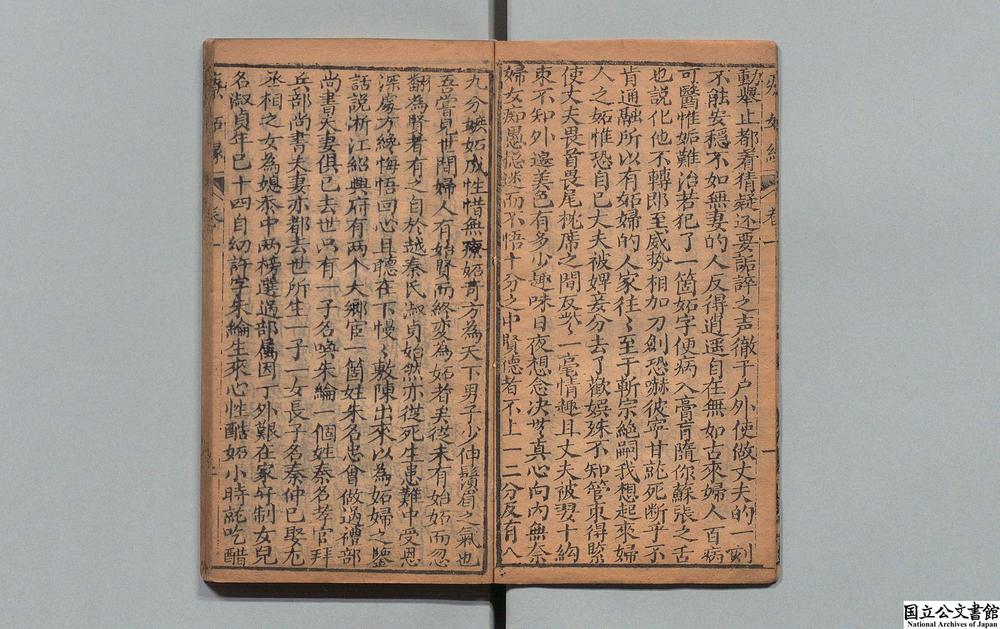 動舉止都着猜疑还要詬誶之声徹于户外使做丈夫的一刻
不能安穩不如無妻的人反得逍遥自在無如古來婦人百病
可醫惟妬難治若犯了一箇妬字便病入膏肓隨你蘇張之舌
也説化他不轉即至威勢相加刀劍恐嚇彼寧甘就死断乎不
肯通融所以有妬婦的人家往〻至于斬宗絶嗣我想起來婦
人之妬惟恐自己丈夫被婢妾分去了歡娛殊不知管束得緊
使丈夫畏首畏尾枕席之間反無一毫情趣且丈夫被
束不知外邊美色有多少趣味日夜想念决無真心向内無奈
婦女痴愚迷而不悟十分之中賢德者不上一二分反有八
九分嫉妬成性惜無療妬奇方為天下男子少伸鬚眉之氣也
吾嘗見世間婦人有始賢而終变為妬者矣從未有始妬而忽
翻為賢者有之自於越秦氏淑貞始然亦從死生患難中受恩
深處方纔悔悟回心且聽在下慢〻敷陳出來以為妬婦之鑒
話説浙江紹興府有两个大鄉宦一箇姓朱名忠曾做過禮部
尚書夫妻俱已去世只有一子名喚朱綸一個姓秦名孝官拜
兵部尚書夫妻亦都去世所生一子一女長子名秦仲已娶
丞相之女為媳叅中两榜選過部属因丁外艱在家守制女兒
名淑貞年已十四自幼許字朱綸生來心性酷妬小時就吃醋
卷一
一
国立公文書館
National Archives of Japan